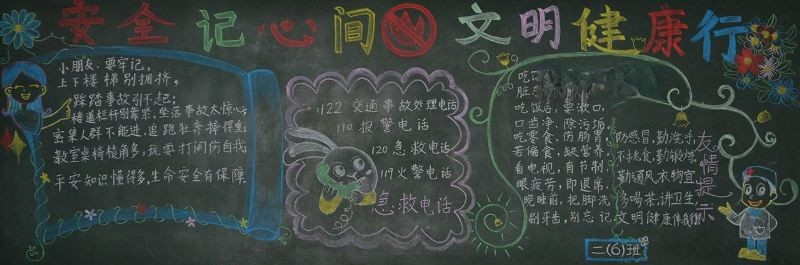 安全记心间 文明健康行
小朋友,要牢记,
上下楼梯别拥挤,
踩踏事故引不起;
楼道栏杆别靠累,坠落事故太惊心
密集人群不能进,追跑狂奔摔得重,
教室桌椅棱角多,玩耍打闹伤自我
平安知识懂得多,生命安全有保障.
122 交通事故处理电话
110 报警电话
120 急救电话
119 火警电话
急救电话
吃
脏
吃饭后,要漱口,
口齿净,除污垢,
吃零食,伤肠胃,
若偏食,缺营养,
看电视,有节制,
眼疲劳,即退席,
晚睡前,把脚洗
刷牙齿,别忘记
防感冒,勤洗手,
不挑食,勤锻炼,
勤通风,衣物宜,
多喝茶,讲卫生,
文明健康伴我行
友情提示
二(6)班